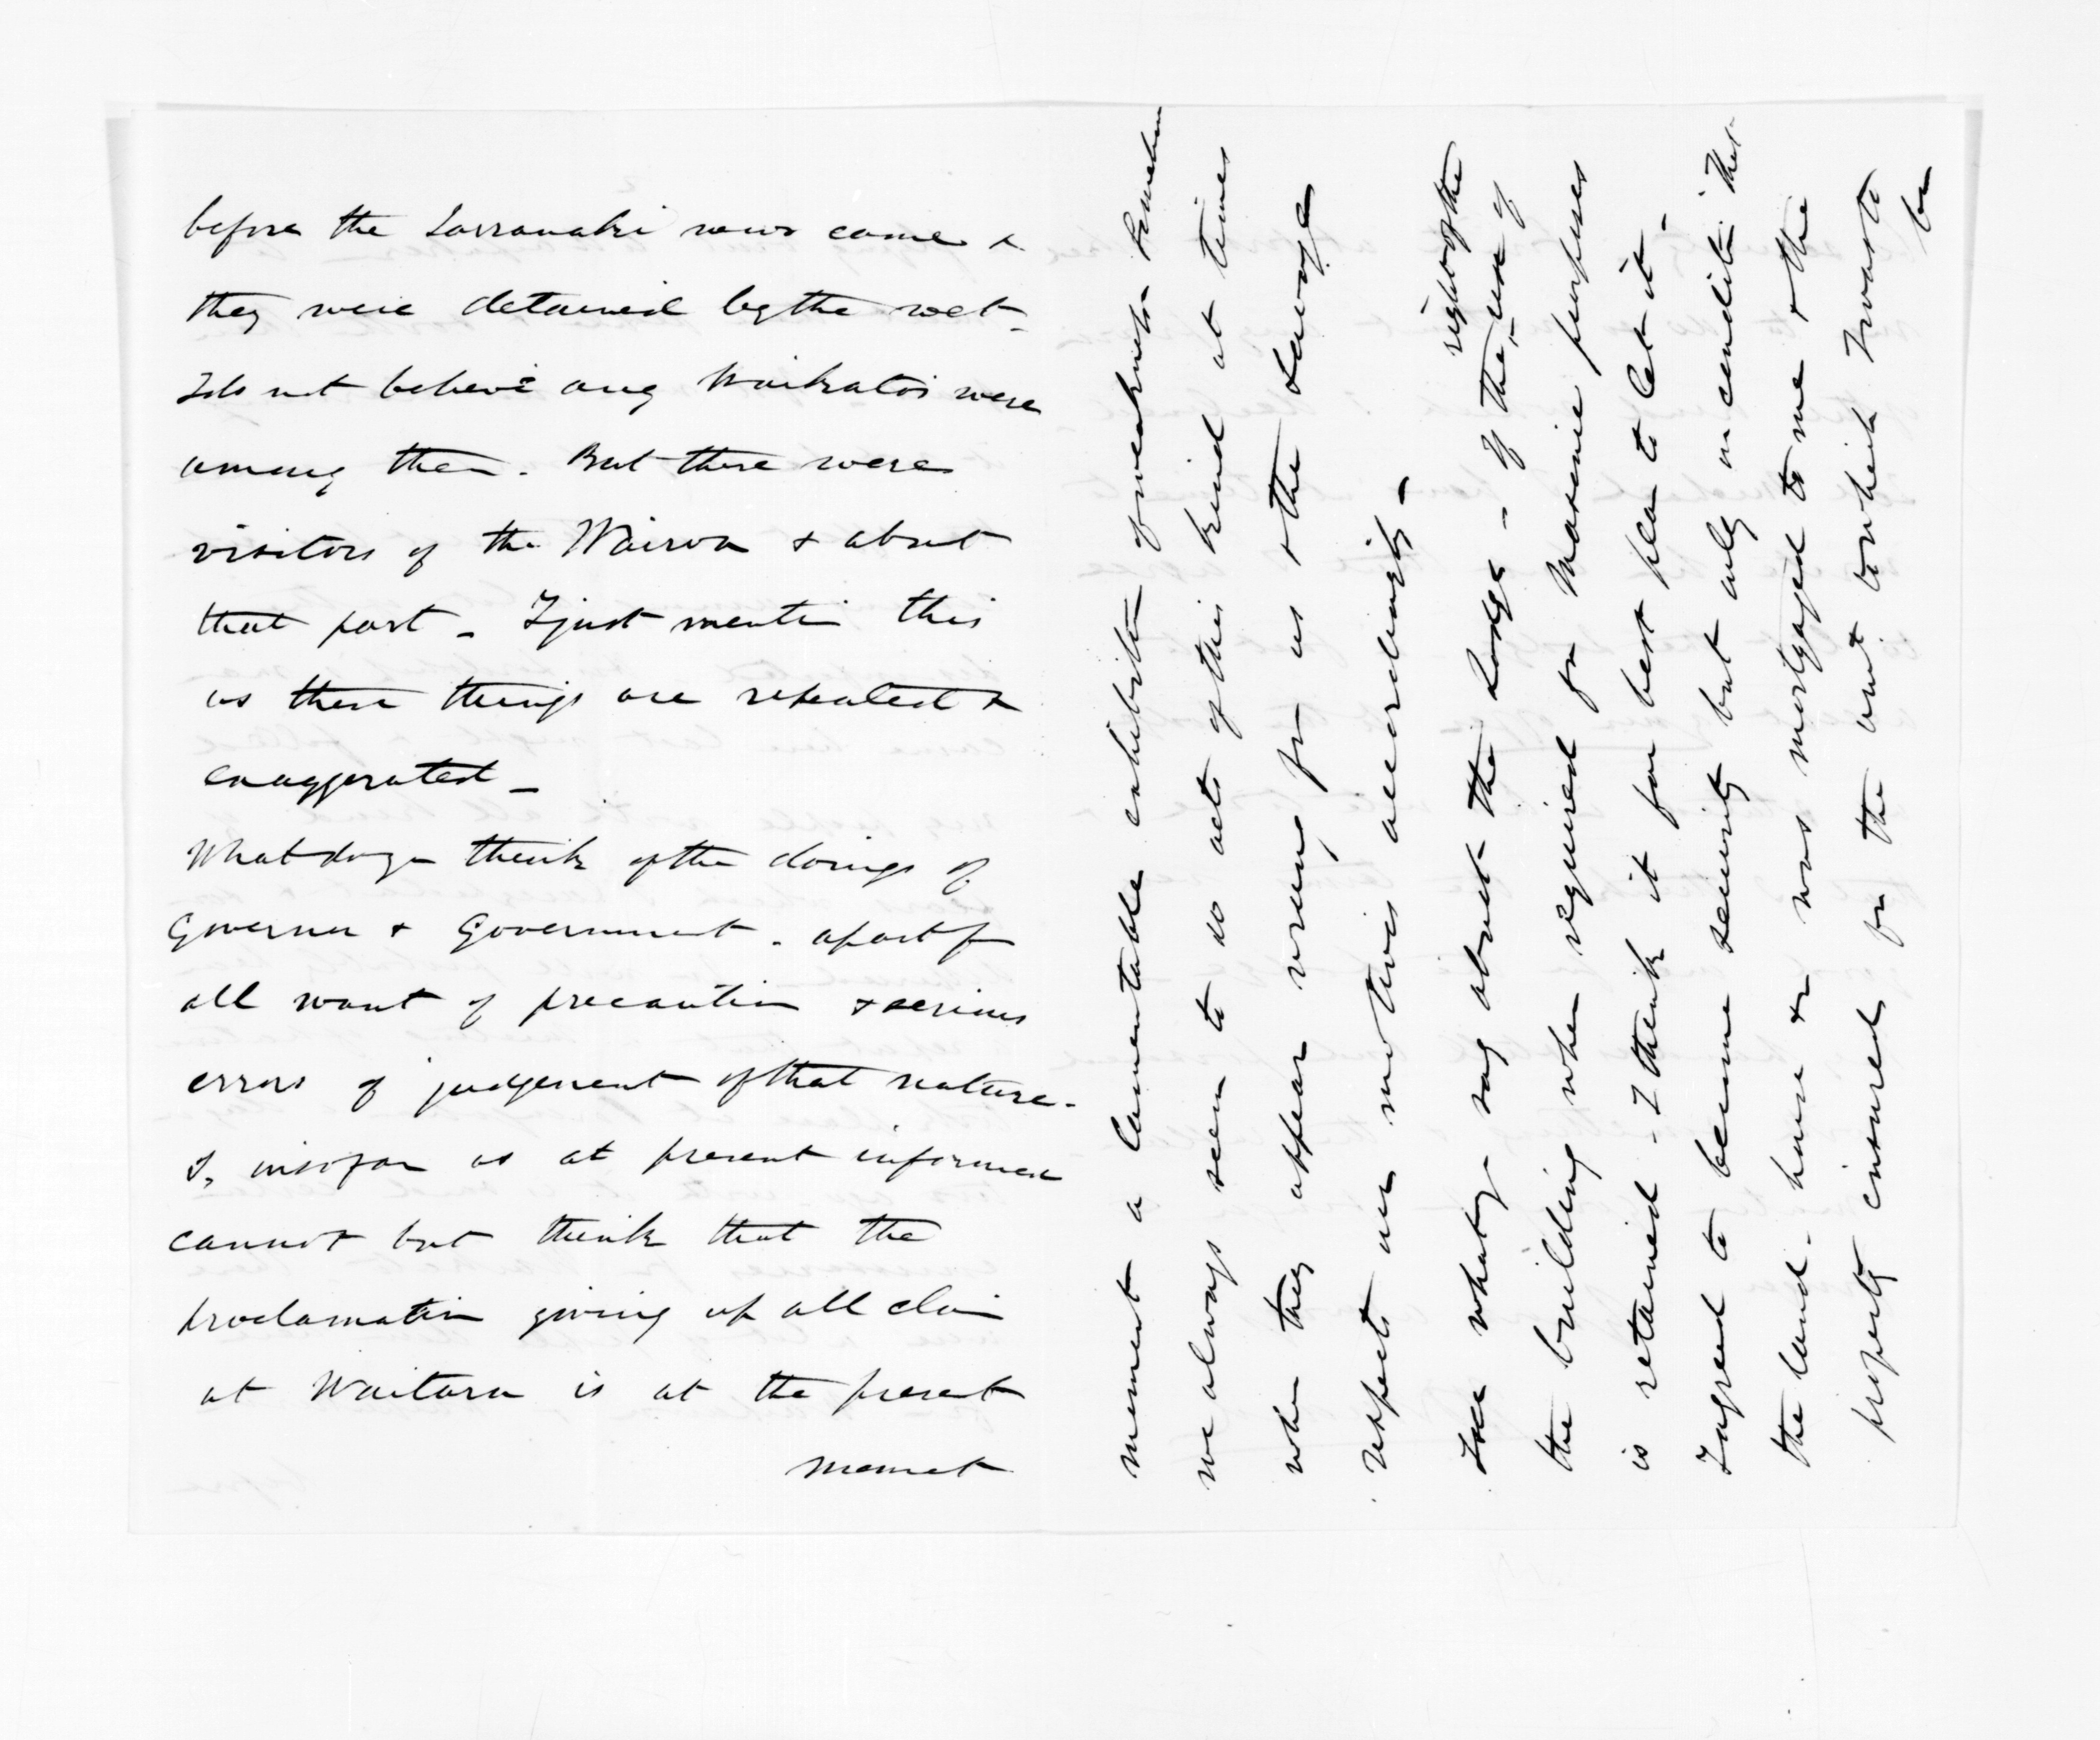 before the Tarranaki news came &
they were detained by the wet -
I do not believe any Waikatos were
among them. But there were
visitors of the Wairoa & about
that part - I just mention this
as these things are repeated &
exaggerated -
What do you think of the doings of
Governor & Government. apart fm
all want of precaution & serious
errors of judgement of that nature -
I, insofar as at present informed
cannot but think that the
proclamation giving up all claim
at Waitara is at the present
moment
moment a lamentable exhibition of weakness
we always seem to do acts of this kind at times
when they appear wrung fm us & the Savage
respects our motives accordingly -
I see what you say about the Lodge - If the right of the use of
the building when required for Masonic purposes
is retained - I think it far best plan to let it -
I agreed to become security but only on condition that
the land - house &c was mortgaged to me & the
property insured for the amt to which I was to
be